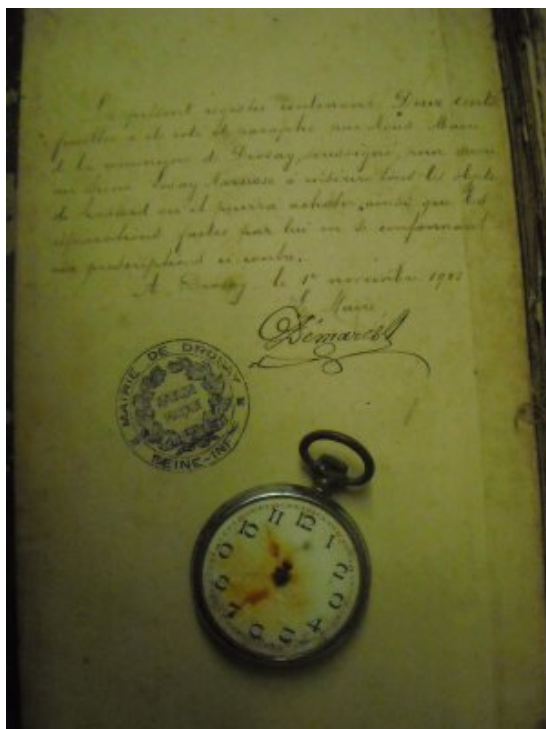 Le présent registre contenant Deux cents
feuillets a été coté et paraphé par Nous Maire
de la commune de Drosay, soussigné, pour
au sieur à inscrire tous les objets
de hasard qu'il pourra acheter, ainsi que les
réparations faites par lui en se conformant
aux prescriptions ci-contre.
A Drosay, le 1er novembre
Le Maire,
Démarest
MAIRIE DE DROSAY
SEINE-INF
10 11 12 1 2 3 4 5 6 7 8 9